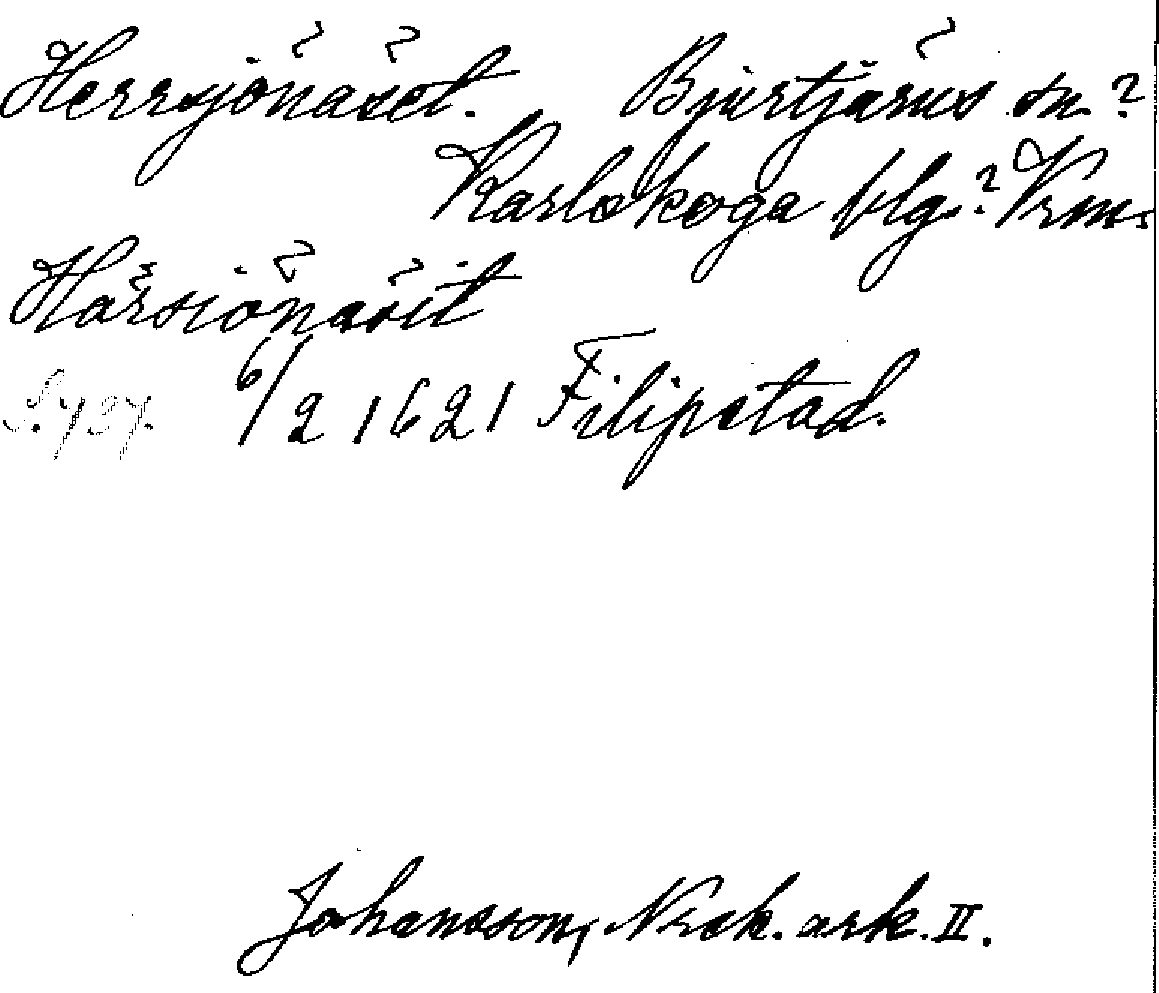 Herrsjönäset. Bjurtjärns sn.?
Karlskoga blg.? Vrml.
Hårsiönäsit
S. 727. 6/2 1621 Filipstad.
Johansson, Nrsk. ark. II.